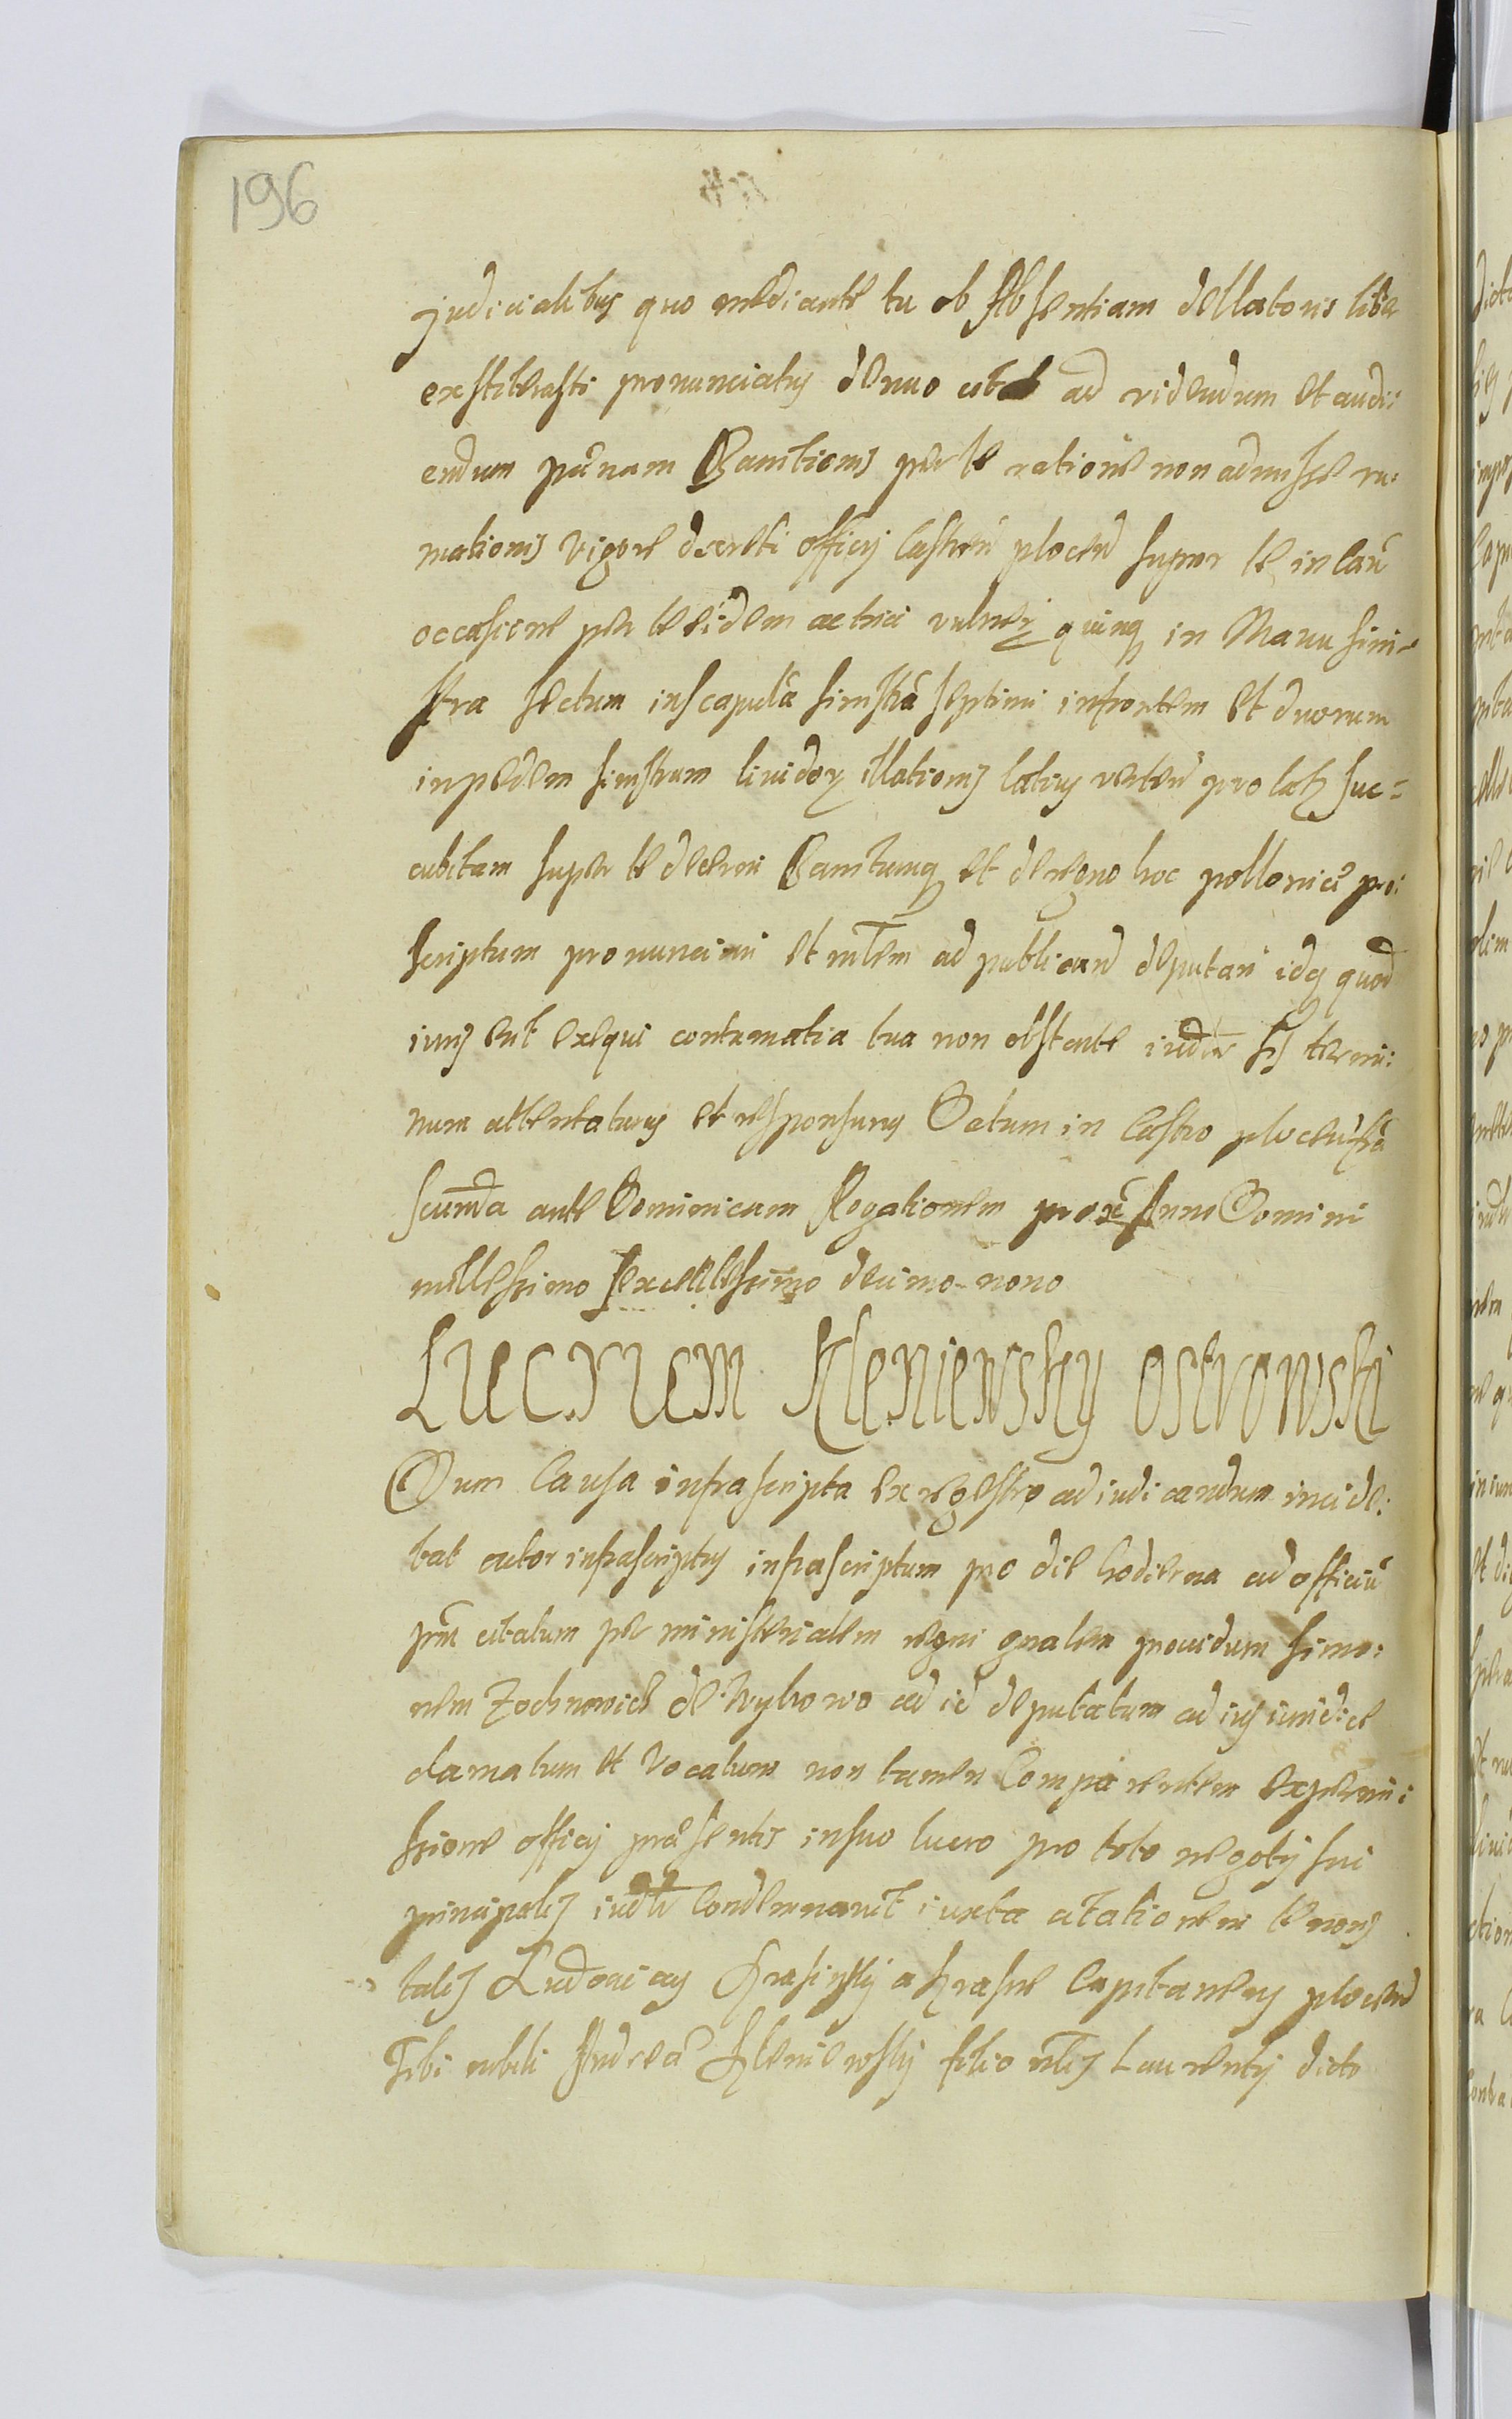 196
judicialibus quo mediante tu ob Absentiam dellatoris liber
exstiterasti pronunciatus denuo citat ad videndum et audi:
endum pænam Banitionis per te ratione non admissæ ru:
mationis vigore decreti officij Castren plocen super te in Caū
occasione per te eidem actrici vulner quinq in Manu sini-
stra sectum in scapulā sinistrā septimi in frontem et duorum
in pedem sinistrum lividor illationis latius verten pro lat suc=
cubitam super te decerni Banitumq et de regno hoc polloniæ pro:
scriptum pronunciari et mlem ad publicand deputari idq quod
iuris erit exequi contumatia tua non obstante iudcr sis termi:
num attentaturus et responsurus Datum in Castro plocen frā
secunda ante Dominicam Rogationem prox Anno Domini
millessimo sexcentessimo decimo-nono
Lucrum Kleniewsky Ostrowski
Dum Causa infrascripta ex regestro ad iudicandum incide:
bat actor infrascriptus infrascriptum pro die hodierna ad officiū
pn̄s citatum per ministerialem regni gnalem providum Simo:
nem Zochnowicz de Wykowo ad id deputatum ad ius iuridice
clamatum et vocatum non tamen Comparentem ex permi:
ssione officij præsentis in suo lucro pro toto negotij sui
principalis iudtr Condemnavit iuxta citationem tenoris
talis Ludovicus Krasinsky a Krasne Capitaneus plocen
Tibi nobili Andreæ Kleniewsky filio nlis Laurentij dicto